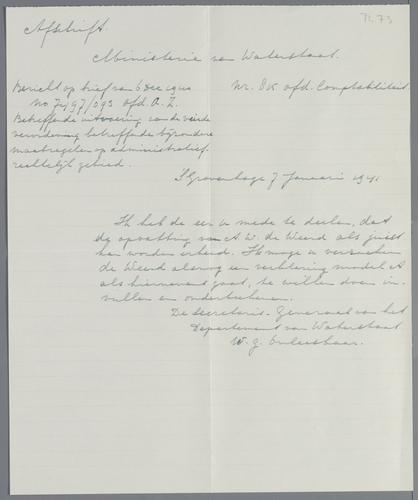 Afschrift.
Ministerie van Waterstaat.
Bericht op brief van 6 Dec 1940
Nr. 8K afd. Comptabiliteit.
No. 7497/093 afd. A. Z.
Betreffende uitvoering van de vierde
verordening betreffende bijzondere
maatregelen op administratief
rechtelijk gebied.
's Gravenhage 7 Januari 1941
Ik heb de eer u mede te deelen, dat
de opvatting van A. W. de Weerd als juist
kan worden erkend. Ik moge u verzoeken
de Weerd alsnog een verklaring model A
als hiernevens gaat, te willen doen in-
vullen en onderteekenen.
De Secretaris-Generaal van het
Departement van Waterstaat
W. g.